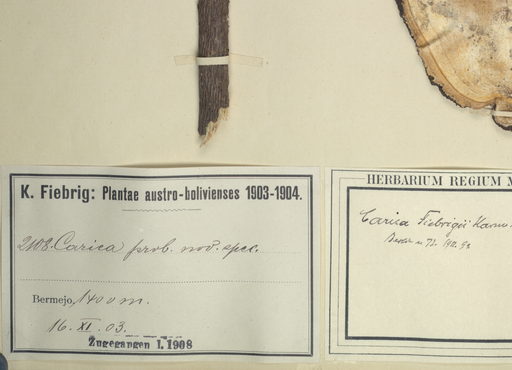 K. Fiebrig: Plantae austro-bolivienses 1903-1904.
2108. Carica prob. nov. spec.
Bermejo, 1400 m.
16. XI. 03.
Zugegangen I. 1908
HERBARIUM REGIUM M
Carica Fiebrigii